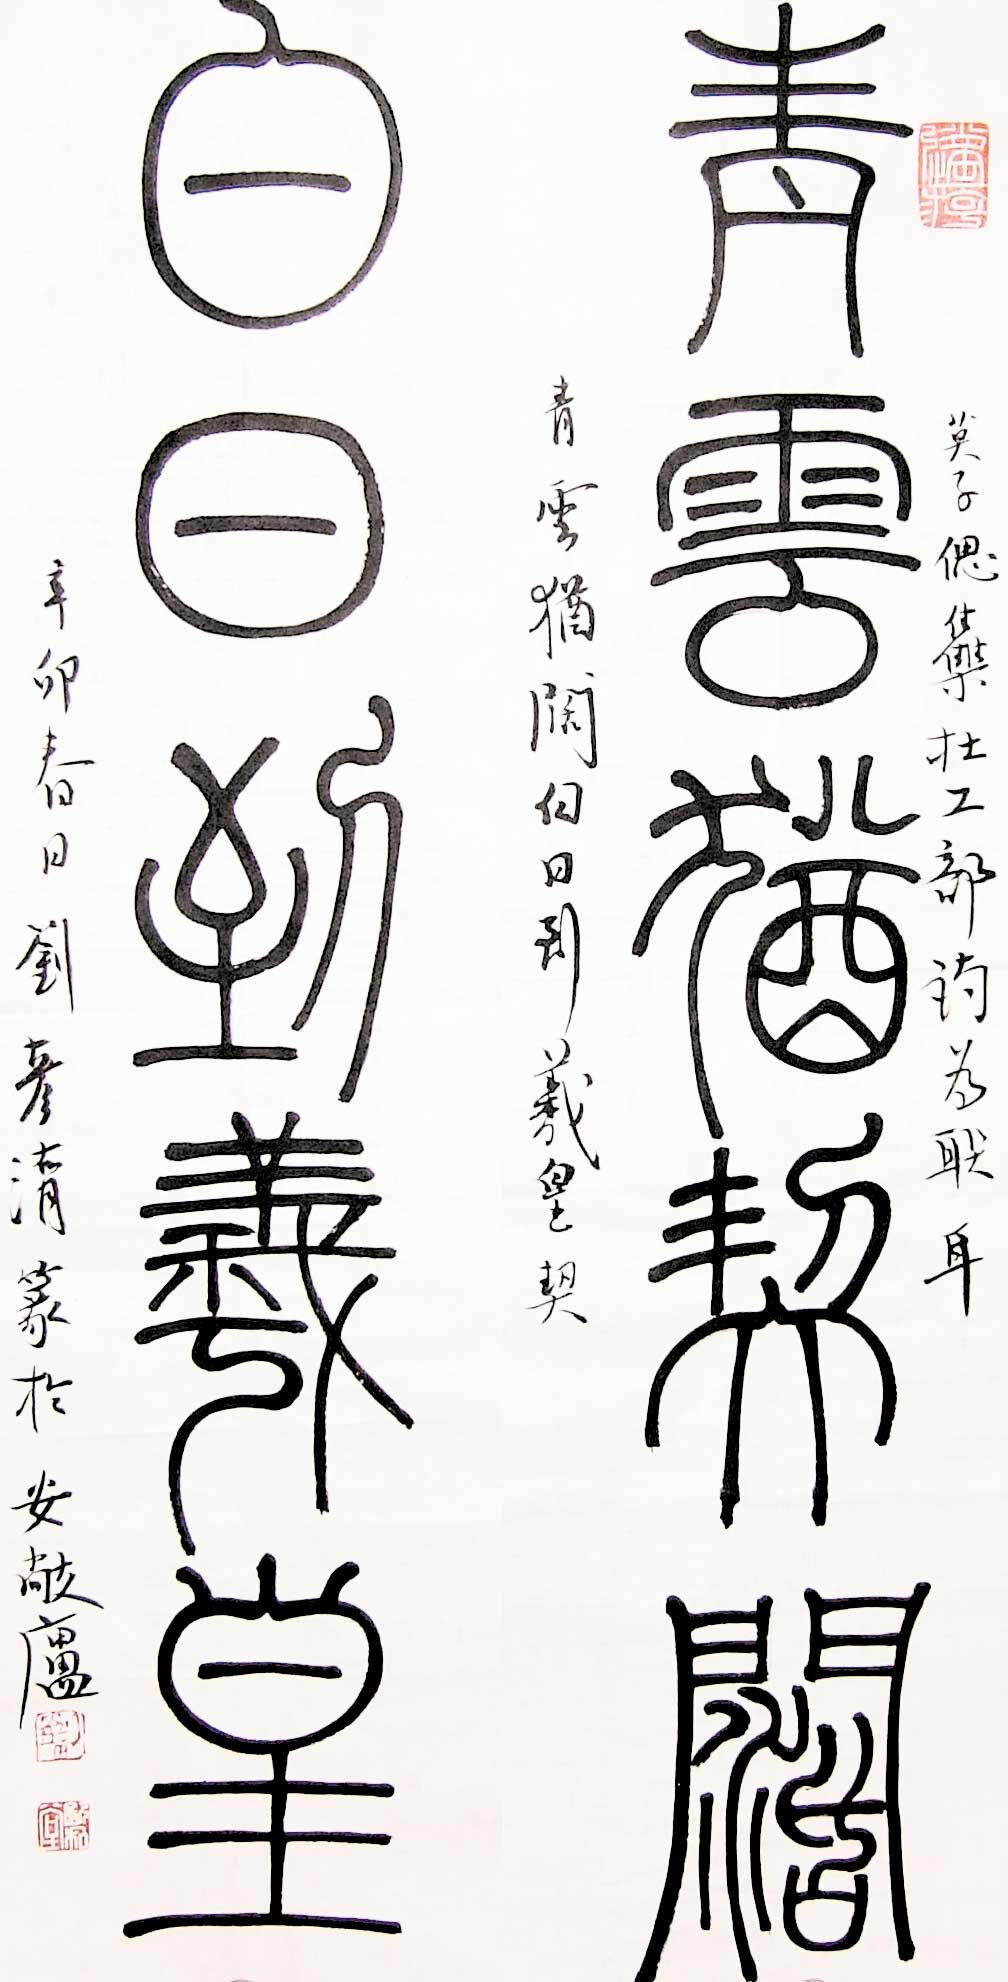 莫子偲集杜工部詩為聯耳
青雲猶契闊
青雲猶闊白日到羲皇契
白日到羲皇
辛卯春日劉彥清篆於安敞廬